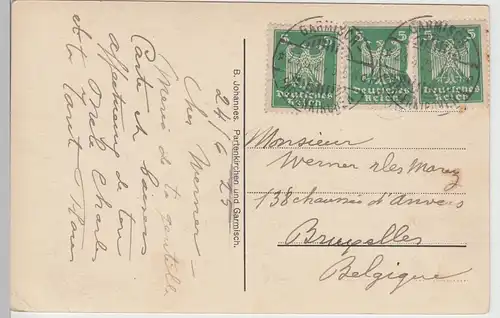 24/6 25
Cher Werner –
Merci de ta gentille
Carte et baisers
affectueux de ton
Oncle Charles
et ta Tante
B. Johannes. Partenkirchen und Garmisch.
5 5 5
Deutsches Reich Deutsches Reich Deutsches Reich
GARMISCH GARMISCH
Monsieur
Werner
138 chaussée d'Anvers
Bruxelles
Belgique